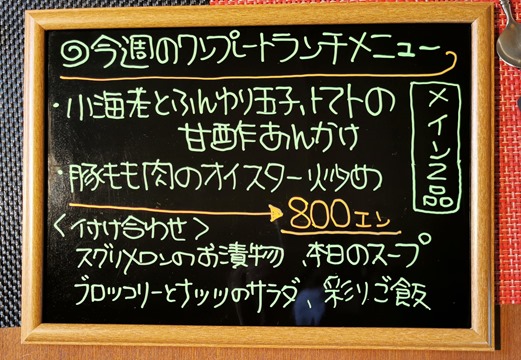 ◎今週のワンプレートランチメニュー
・小海老とふんわり玉子、トマトの
甘酢あんかけ
・豚もも肉のオイスター炒め
メイン2品
800エン
〈付け合わせ〉
スグリメロンのお漬物、本日のスープ
ブロッコリーとナッツのサラダ、彩りご飯